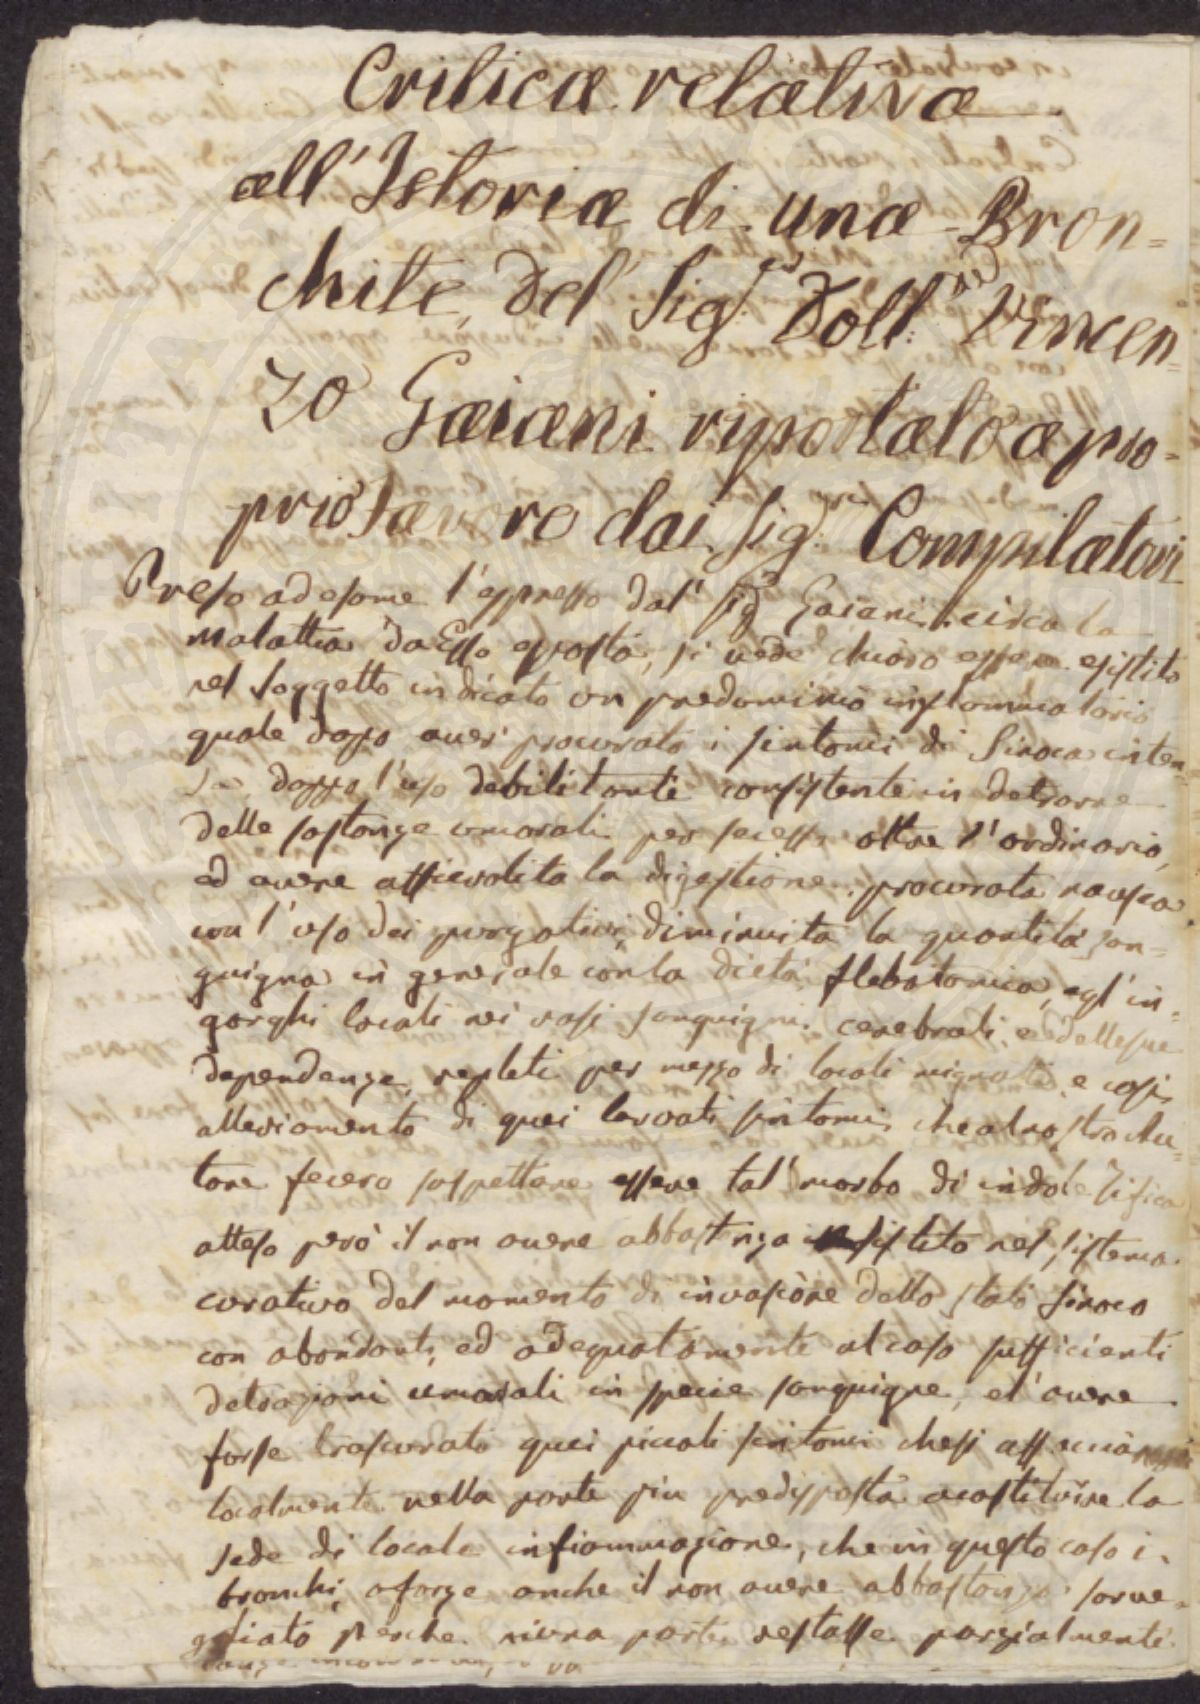 Critica relativa
all'Istoria di una Bron=
chite, del Sig.r Dott.r Vincen=
zo Gaiani riportato a pro=
prio favore dai Sig.ri Compilatori
Preso ad esame l'espresso dal Sig.r Gaiani, circa la
malattia da Esso esposta, si vede chiaro essere esistito
nel soggetto indicato un predominio inflammatorio
quale dopo aver procurato i sintomi di Sinoca inten=
sa, doppo l'uso debilitante consistente in detrarre
delle sostanze umorali per secesso oltre l'ordinario,
ed avere affievolita la digestione, procurata nausea
con l'uso dei purgativi, diminuita la quantità san=
guigna in generale con la dieta flebotomica, egl'in=
gorghi locali nei vasi sanguigni cerebrali, e delle sue
dependenze, repleti per mezzo di locali mignatte e così
alleviamento di quei larvati sintomi, che al nostro Au=
tore fecero sospettare essere tal morbo di indole Tifica
atteso però il non avere abbastanza insistito nel sistema
curativo del momento di invasione dello stato Sinoco
con abondanti, ed adequatamente al caso sufficienti
detrazioni umorali in specie sanguigne, el'avere
forse trascurati quei piccoli sintomi che si
localmente nella parte più predisposta a costituire la
sede di locale infiammazione, che in questo caso i
bronchi, o forse anche il non avere abbastanza sorve=
gliato perche niuna parte restasse parzialmente